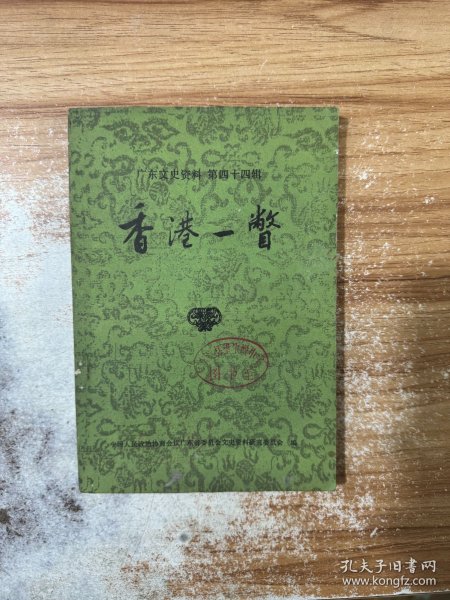 广东文史资料 第四十四辑
香港一瞥
中国人民政治协商会议广东省委员会文史资料研究委员会 编
孔夫子旧书网
www.kongfz.com